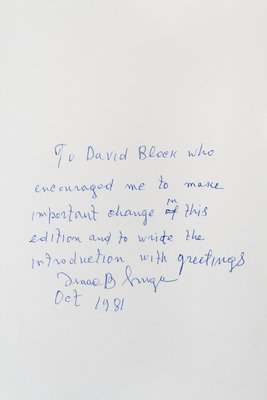 To David Block who
encouraged me to make
important change in this
edition and to write the
introduction with greetings
Isaac B Singer
Oct 1981